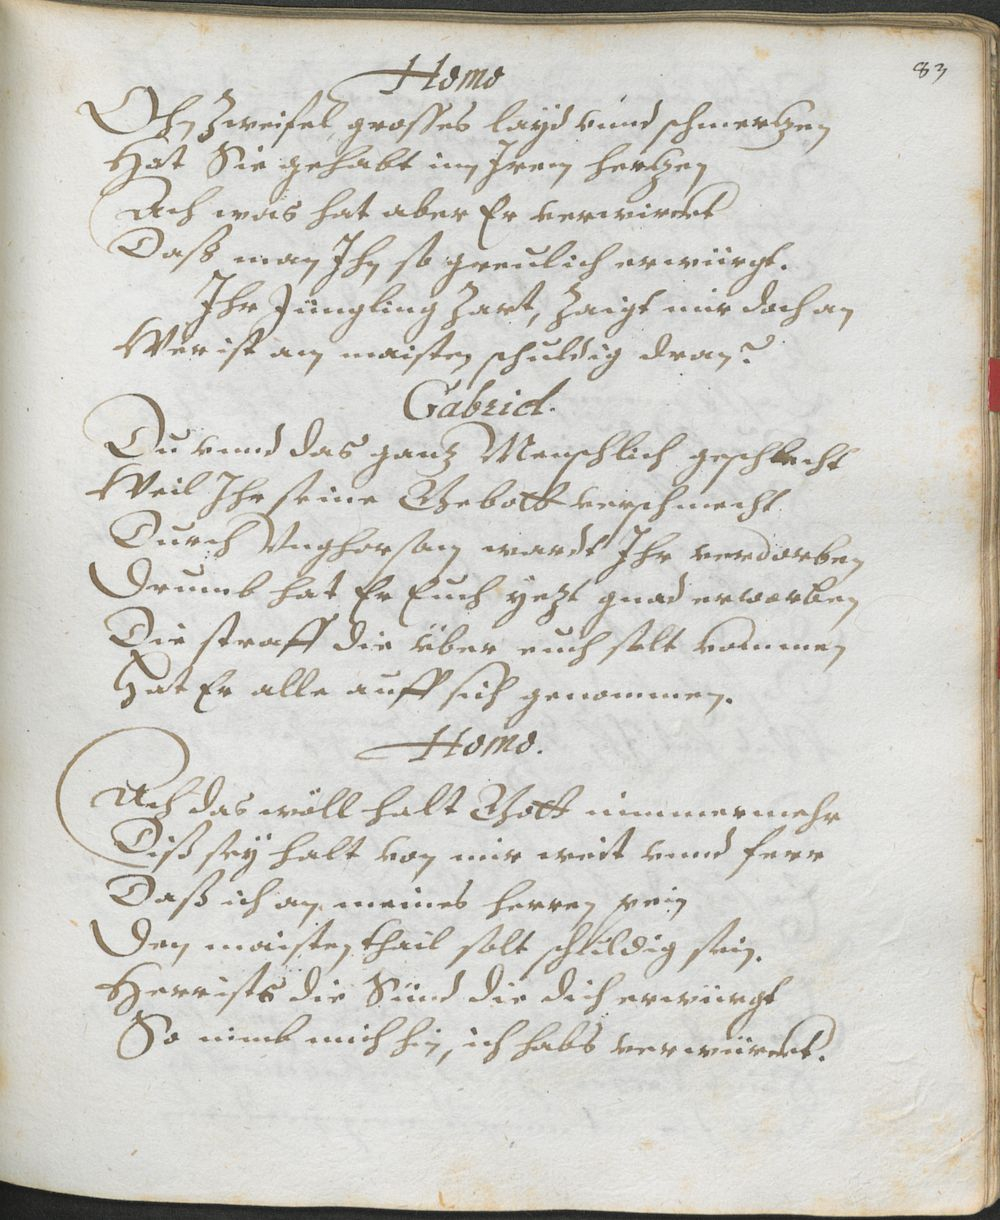 83
Homo
Ohn Zweifel grosses layd vnnd schmertzen
Hat Sie gehabt inn Irem hertzen
Ach was hat aber Er verwirckt
Daß man Ihn so greulich erwürgt.
Ihr Jüngling Zart, Zaigt mir doch an
Wer ist am maisten schuldig dran?
Gabriel.
Du vnnd das gantz Menschlich geschlecht
Weil Ihr seine Gebott verschmecht
Durch Vnghorsam wardt Ihr verdorben
Drumb hat Er Euch yezt gnad erworben
Die straff die über euch solt kommen
Hat Er alle auff sich genommen.
Homo.
Ach das wöll halt Gott nimmermehr
Diß sey halt von mir weit vnnd ferr
Daß ich an meines herren pein
Den maisten thail solt schuldig sein.
Herr ists die Sünd die dich erwürgt
So nimb mich hin, ich habs verwürckt.